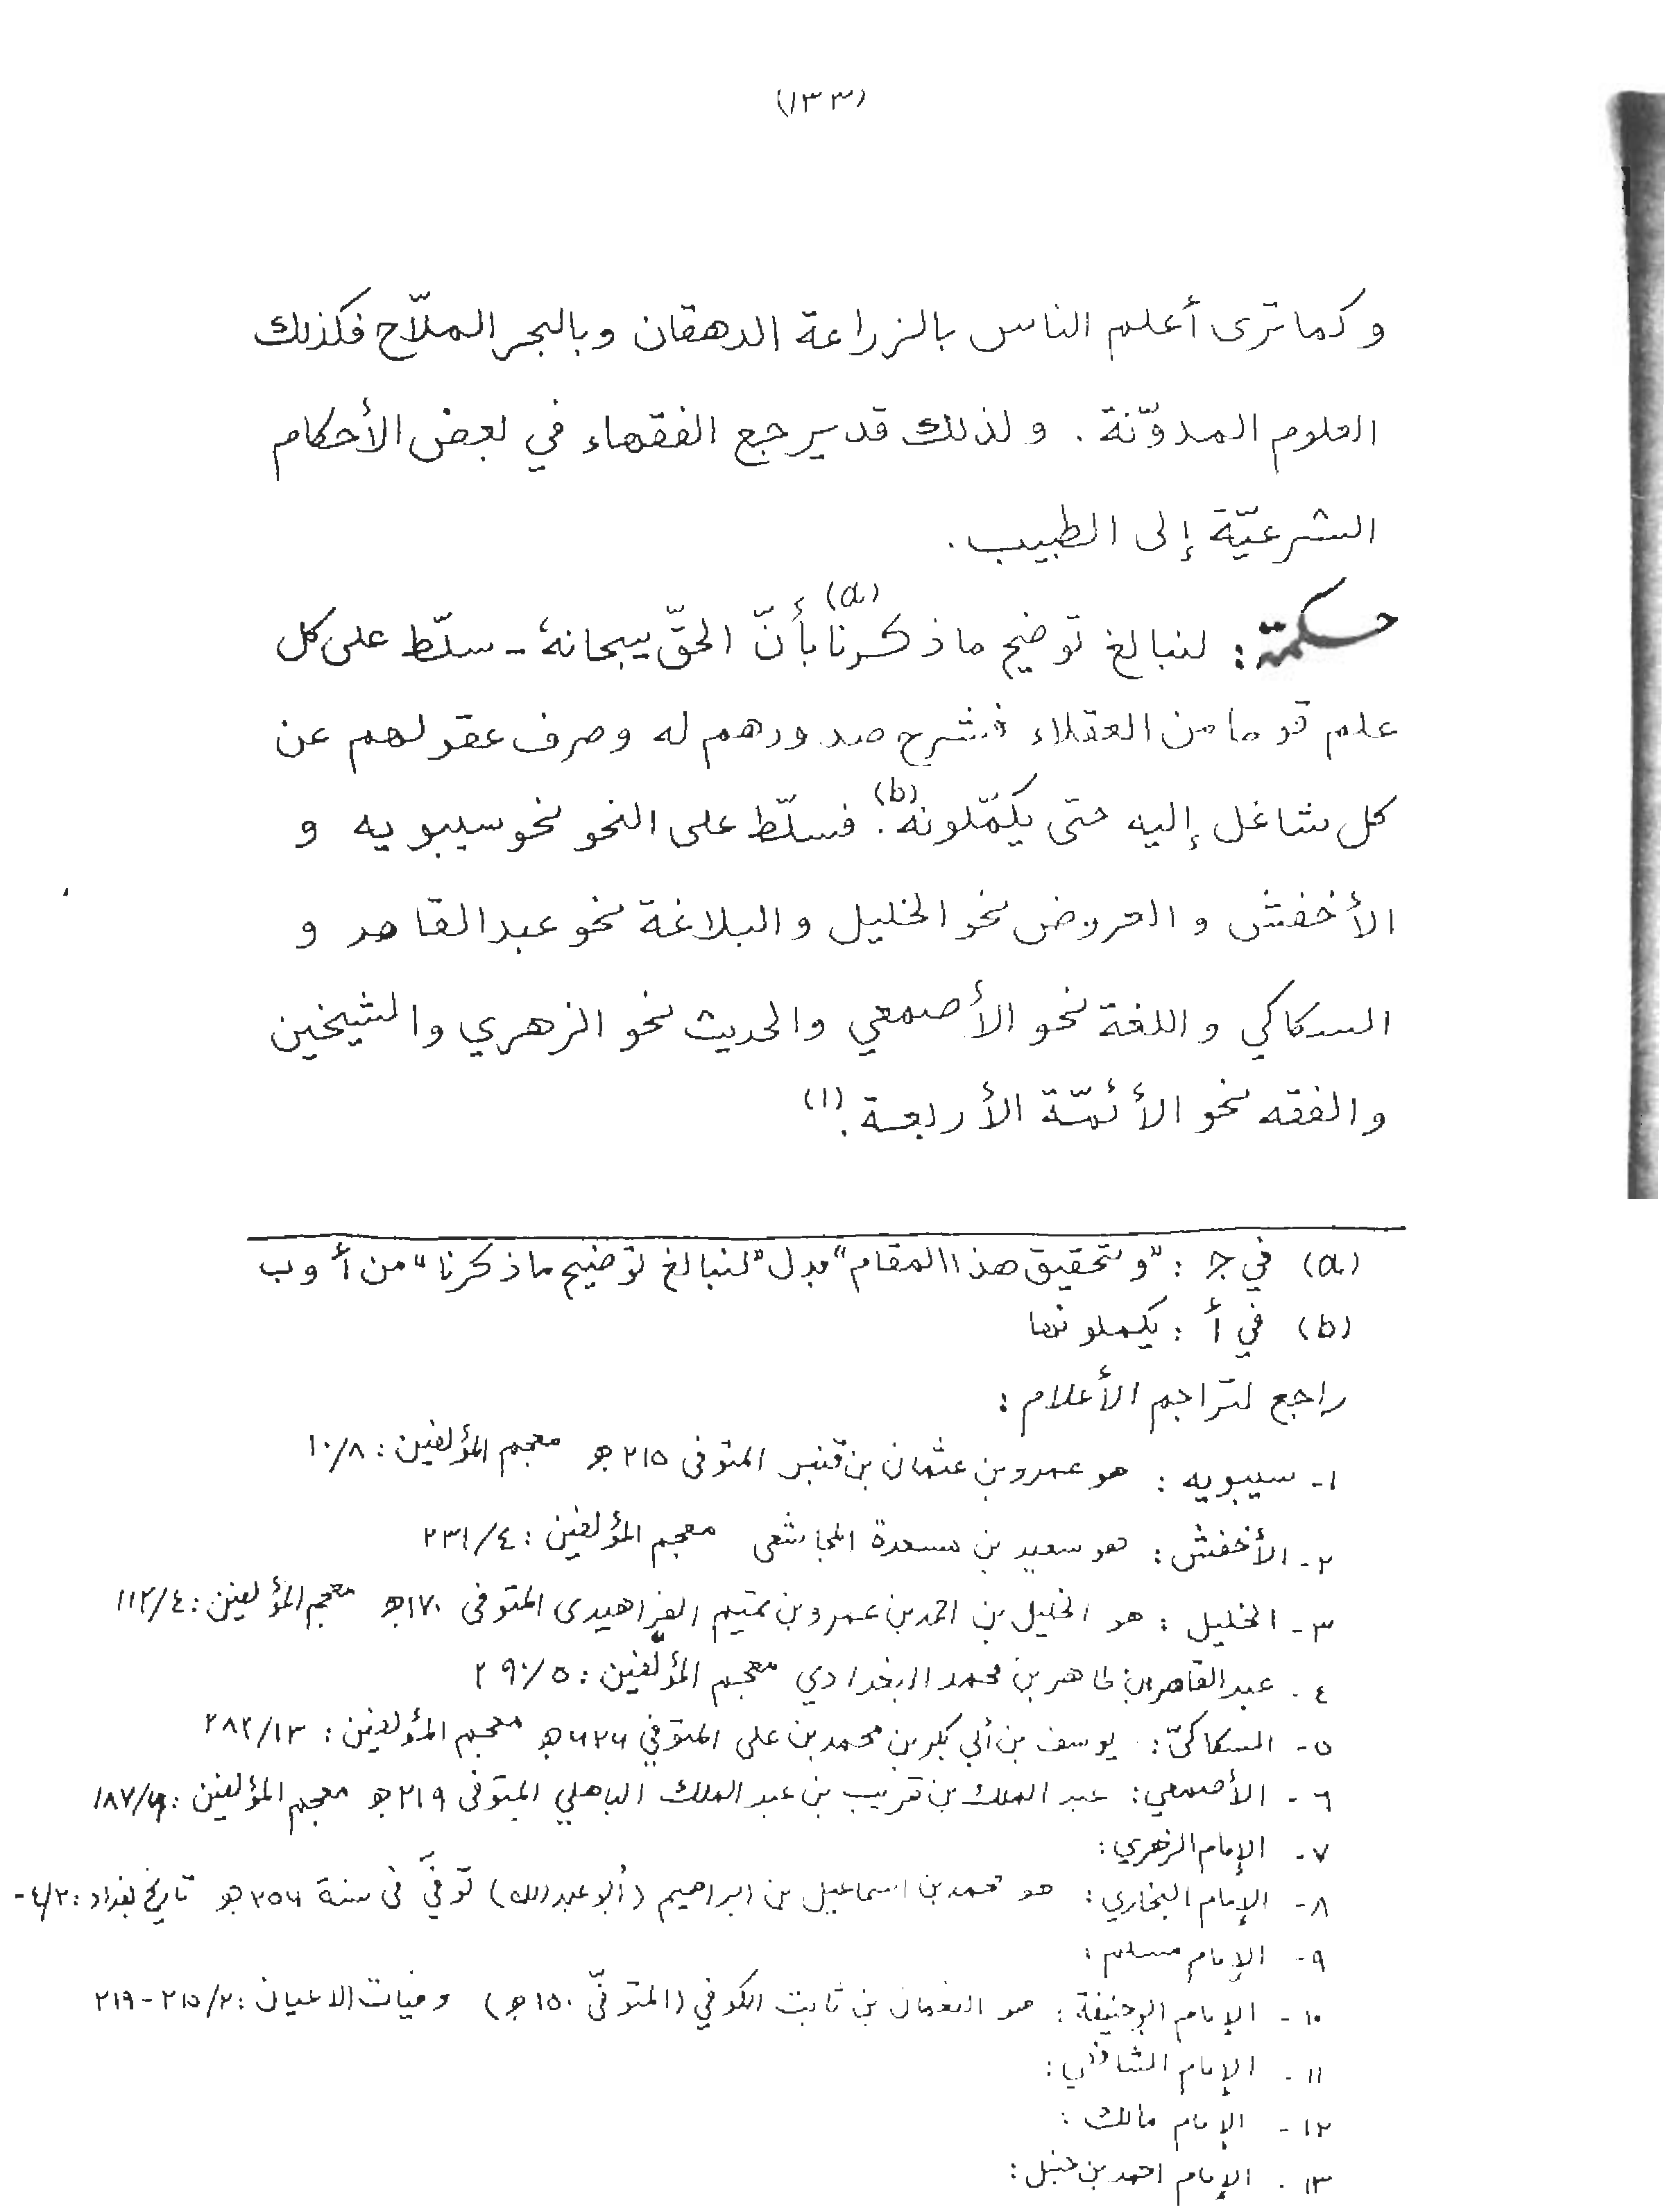 (١٣٣)
وكما ترى أعلم الناس بالزراعة الدهقان وبالبحر الملاّح فكذلك
العلوم المدوّنة. ولذلك قد يرجع الفقهاء في بعض الأحكام
الشرعيّة إلى الطبيب.
حكمة: لنبالغ توضيح ما ذكرنا(a) بأنّ الحقّ سبحانهٗ - سلّط على كل
علم قوما من العقلاء فشرح صدورهم له وصرف عقولهم عن
كل شاغل إليه حتى يكمّلونه(b). فسلّط على النحو نحو سيبويه و
الأخفش و العروض نحو الخليل و البلاغة نحو عبد القاهر و
السكاكي و اللغة نحو الأصمعي والحديث نحو الزهري والشيخين
و الفقه نحو الأئمّة الأربعة.(١)
(a) في ج : "و تحقيق هذا المقام" بدل "لنبالغ توضيح ما ذكرنا" من أ و ب
(b) في أ : يكملونها
راجع لتراجم الأعلام :
١- سيبويه : هو عمرو بن عثمان بن قنبر المتوفى ٢١٥ هـ معجم المؤلفين : ١٠/٨
٢- الأخفش : هو سعيد بن مسعدة المجاشعى معجم المؤلفين : ٢٣١/٤
٣- الخليل : هو الخليل بن احمد بن عمرو بن تميم الفراهيدى المتوفى ١٧٠هـ معجم المؤلفين : ١١٢/٤
٤. عبد القاهر بن طاهر بن محمد البغدادي معجم المؤلّفين : ٢٩٠/٥
٥- السكاكىّ : يوسف بن أبي بكر بن محمد بن على المتوفي ٦٢٦هـ معجم المؤلفين : ٢٨٢/١٣
٦- الأصمعي : عبد الملك بن قريب بن عبد الملك الباهلي المتوفى ٢١٩ هـ معجم المؤلفين : ١٨٧/٦
٧- الإمام الزهري :
٨- الإمام البخاري : هو محمد بن اسماعيل بن ابراهيم (أبو عبد الله) توفّي فى سنة ٢٥٦ هـ تاريخ بغداد : ٤/٢-
٩- الإمام مسلم :
١٠- الإمام ابوحنيفة : هو النعمان بن ثابت الكوفي (المتوفّى ١٥٠ هـ) وفيات الاعيان : ٢١٥/٢-٢١٩
١١- الإمام الشافعي :
١٢- الإمام مالك :
١٣. الإمام احمد بن حنبل :